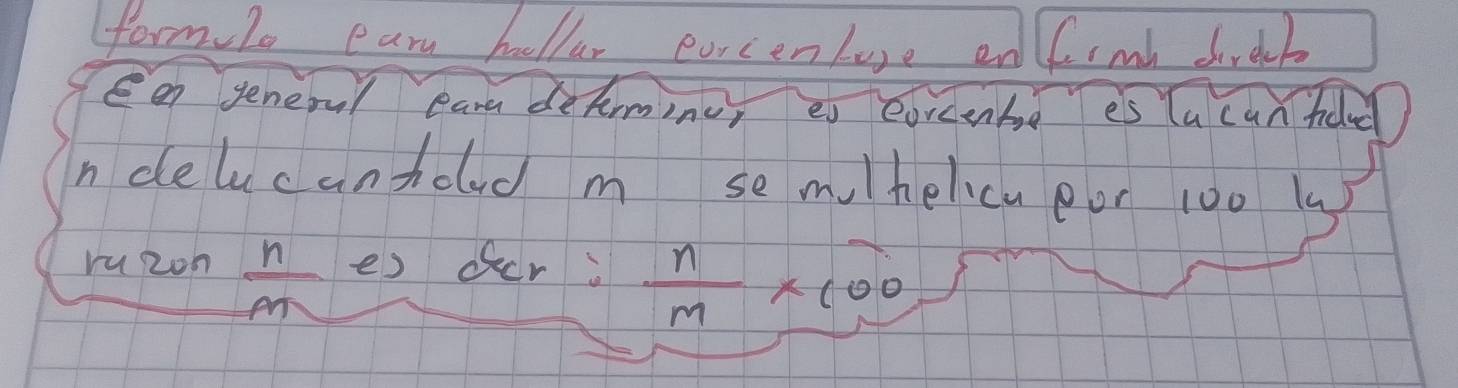 formula para hallar porcentaje en forma directa
En general para determinar es porcentaje es la cantidad
n de la cantidad m se multiplica por 100 la
razon n/m es decir : n/m × 100